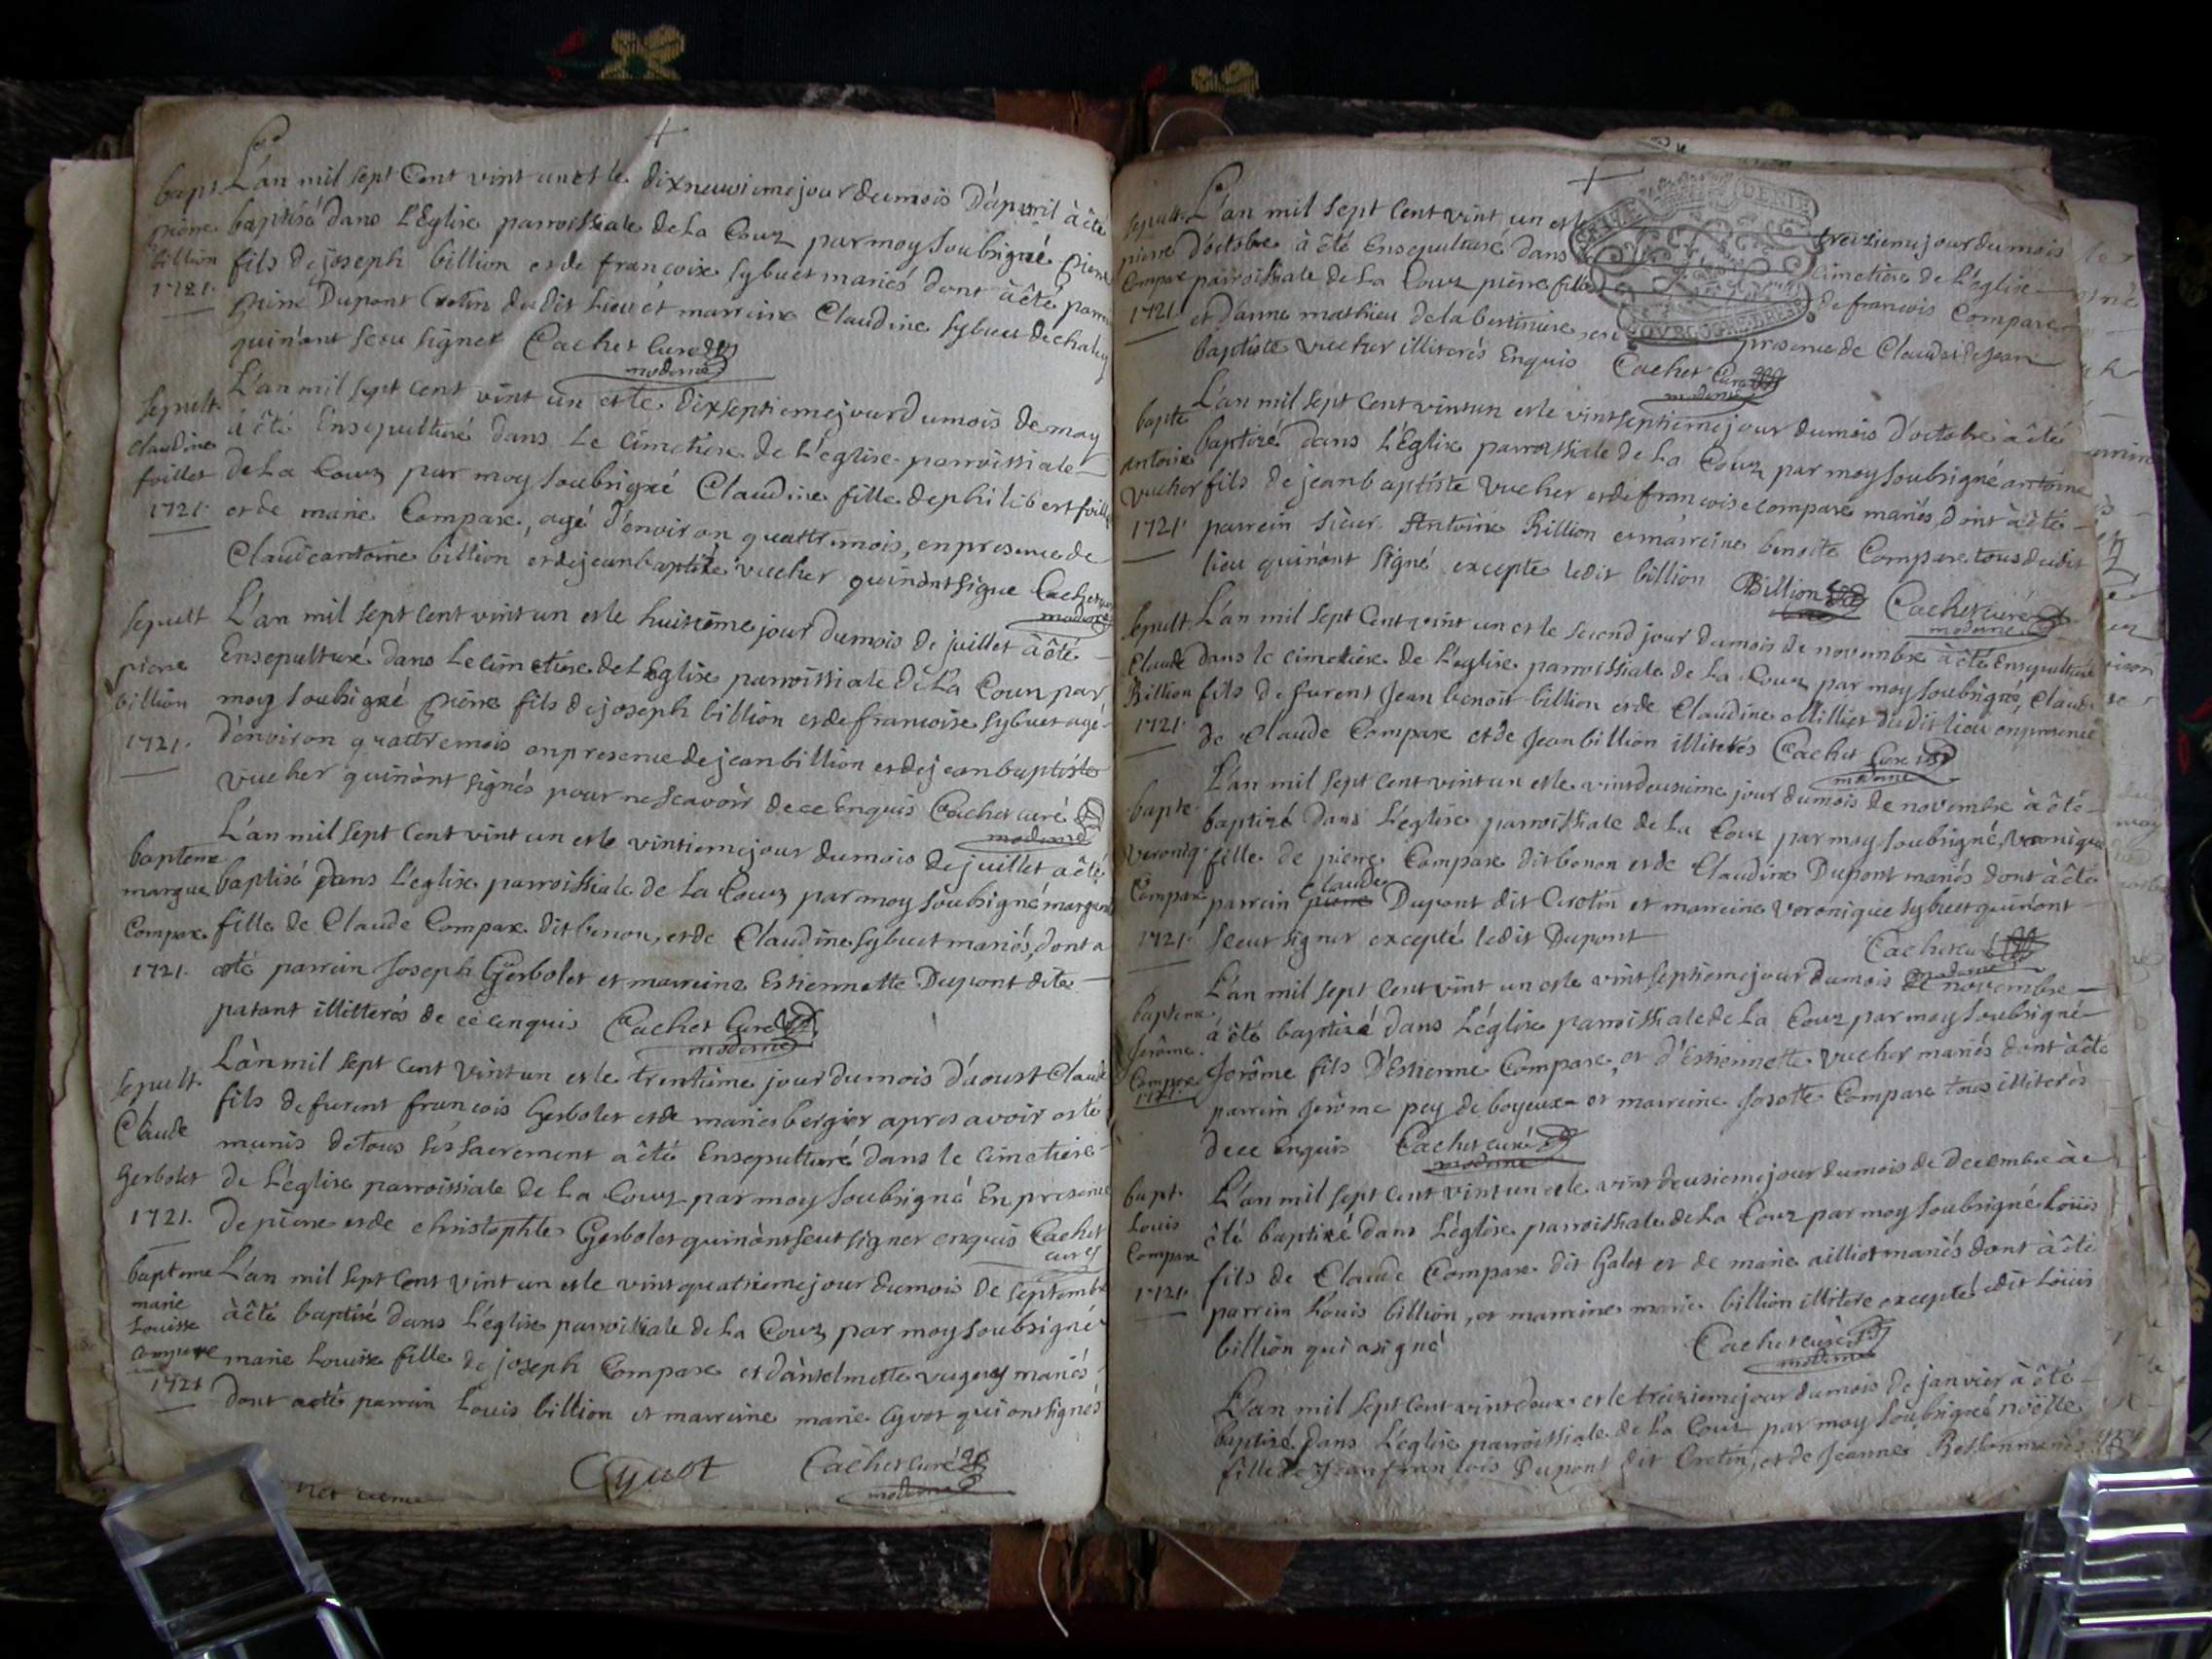 bapt. L'an mil sept Cent vint un et le dixneuviemejour dumois D'apvril à été
pierre baptisé dans L'Eglise parroissiale de La Couz par moy soubsigné pierre
billion fils de joseph billion et de francoise sybuet mariés dont à été parrein
1721. pierre Dupont Cretin du dit lieu et marreine Claudine sybuet de
quinont sceu signer Cachet Curé
moderne
L'an mil sept cent vint un et le dixseptiemejour dumois de may
sepult. à été Ensepulturé dans Le Cimetiere de L'église parroissiale
Claudine de La Couz par moy soubsigné Claudine fille de philibert
foillet et de marie Compare, agé d'environ quattre mois, en presence de
1721. Claude antoine billion et de jeanbaptiste vucher quinont signe Cachet
moderne
sepult L'an mil sept cent vint un et le huitiéme jour dumois de juillet à été
pierre Ensepulturé dans Le cimetiere de L'Eglise parroissiale de La Couz par
billion moy soubsigné pierre fils de joseph billion et de francoise sybuet agé
1721. d'environ quattre mois en presence de jean billion et de jean baptiste
vucher quinònt signés pour ne scavoir de ce Enquis Cachet curé
moderne
L'an mil sept Cent vint un et le vintiemejour dumois de juillet a été
bapteme baptisé dans L'eglise parroissiale de La Couz par moy soubsigné
margue fille de Claude Compare dit benon, et de Claudine sybuet mariés, dont a
Compare
1721. été parrein Joseph Gerbolet et marreine Estiennette Dupont dite
patant illitterés de ce enquis Cachet Curé
moderne
L'àn mil sept cent vint un et le trentiéme jour dumois d'aoust Claude
sepult. fils de furent francois Gerbolet et de marie bergier apres avoir esté
Claude munis de tous ses sacrement a été Ensepulturé dans le Cimetiere
Gerbolet de L'église parroissiale de La Couz par moy soubsigné En presence
1721. de pierre et de christophle Gerbolet quinònt seut signer enquis Cachet
curé
bapteme L'an mil sept cent vint un et le vint quatriemejour dumois de septembre
marie à été baptisé dans L'église parroissiale de La Couz par moy soubsigné
Louisse
Compare marie Louise fille de joseph Compare et d'antelmette mariés
1721 dont a été parrein Louis billion et marreine marie Cyvot qui ont signés
Cachet curé
moderne
sepult. L'an mil sept cent vint un et le treiziemejour dumois
pierre d'octobre à été Ensepulturé dans cimetiere de L'église
Compare parroissiale de La Couz pierre fils de francois Compare
1721. et d'anne mathieu de la presence de Claude et de Jean
baptiste vucher illiterés Enquis Cachet Curé
moderne
L'an mil sept Cent vint un et le vint septiemejour dumois d'octobre à été
bapte baptizé dans L'Eglise parroissiale de La Couz par moy soubsigné antoine
antoine
vucher fils de jean baptiste vucher et de francoise compare mariés, dont à été
1721. parrein sieur Antoine Billion et marreine benoite Compare tous dudit
lieu quinont signé excepte ledit billion Billion Cachet curé
moderne
sepult. L'an mil sept Cent vint un et le second jour dumois de novembre à été Ensepulturé
Claude dans le cimetiere de L'eglise parroissiale de La Couz par moy soubsigné, Claude
Billion fils de furent Jean benoit billion et de Claudine dudit lieu en presence
1721. de Claude Compare et de Jean billion illiterés Cachet Curé
moderne
L'an mil sept Cent vint un et le vint deusieme jour dumois de novembre à été
bapte. baptizé dans L'église parroissiale de La Couz par moy soubsigné, veronique
veroniq. fille de pierre Compare dit bonon et de Claudine Dupont mariés dont à été
Claude
Compare parrein pierre Dupont dit Cretin et marreine veronique sybuet quinont
1721. sceut signer excepté ledit Dupont Cachet cu
moderne
L'an mil sept Cent vint un et le vint septiemejour dumois de novembre
bapteme à été baptizé dans L'église parroissiale de La Couz par moy soubsigné
Jerôme Jerôme fils D'Estienne Compare, et d'Estiennette vucher mariés dont à été
Compare
1721. parrein Jerôme pey de boyeux et marreine Josotte Compare tous illiterés
de ce enquis Cachet curé
moderne
bapt. L'an mil sept cent vint un et le vint deusiemejour dumois de decembre à
Louis été baptizé dans L'église parroissiale de La Couz par moy soubsigné Louis
Compare fils de Claude Compare dit Galet et de marie ailliot mariés dont à été
1721. parrein Louis billion, et marreine marie billion illitere excepté ledit Louis
billion qui a signé Cachet curé
moderne
L'an mil sept Cent vint deux et le treiziemejour dumois de janvier à été
baptizé dans L'église parroissiale de La Couz par moy soubsigné noëlle
fille de jean francois Dupont dit Cretin, et de Jeanne mariés